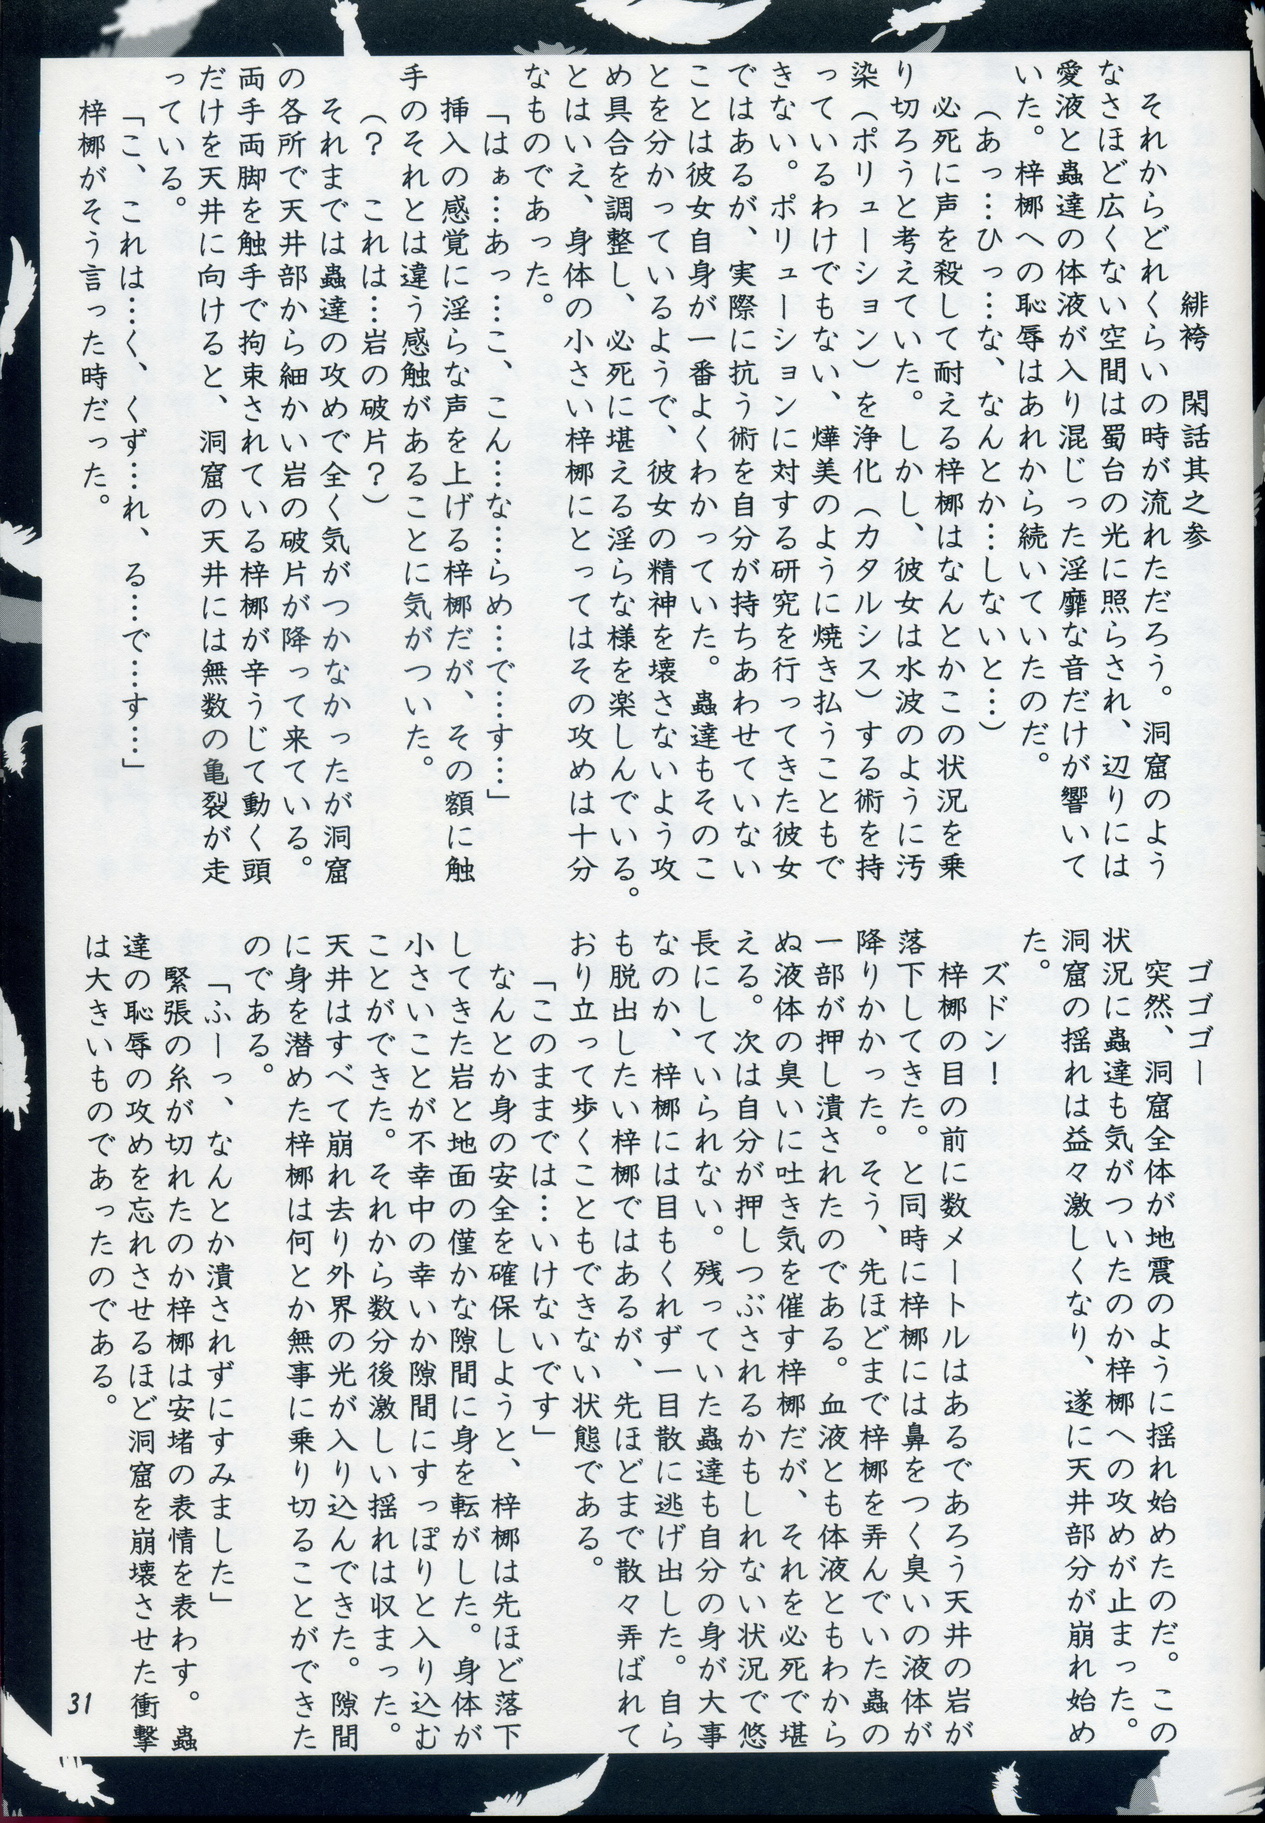 緋袴　閑話其之参
それからどれくらいの時が流れただろう。洞窟のよう
なさほど広くない空間は蜀台の光に照らされ、辺りには
愛液と蟲達の体液が入り混じった淫靡な音だけが響いて
いた。梓梛への恥辱はあれから続いていたのだ。
（あっ…ひっ…な、なんとか…しないと…）
必死に声を殺して耐える梓梛はなんとかこの状況を乗
り切ろうと考えていた。しかし、彼女は水波のように汚
染（ポリューション）を浄化（カタルシス）する術を持
っているわけでもない、燁美のように焼き払うこともで
きない。ポリューションに対する研究を行ってきた彼女
ではあるが、実際に抗う術を自分が持ちあわせていない
ことは彼女自身が一番よくわかっていた。蟲達もそのこ
とを分かっているようで、彼女の精神を壊さないよう攻
め具合を調整し、必死に堪える淫らな様を楽しんでいる。
とはいえ、身体の小さい梓梛にとってはその攻めは十分
なものであった。
「はぁ…あっ…こ、こん…な…らめ…で…す…」
挿入の感覚に淫らな声を上げる梓梛だが、その額に触
手のそれとは違う感触があることに気がついた。
（？　これは…岩の破片？）
それまでは蟲達の攻めで全く気がつかなかったが洞窟
の各所で天井部から細かい岩の破片が降って来ている。
両手両脚を触手で拘束されている梓梛が辛うじて動く頭
だけを天井に向けると、洞窟の天井には無数の亀裂が走
っている。
「こ、これは…く、くず…れ、る…で…す…」
梓梛がそう言った時だった。
ゴゴゴー
突然、洞窟全体が地震のように揺れ始めたのだ。この
状況に蟲達も気がついたのか梓梛への攻めが止まった。
洞窟の揺れは益々激しくなり、遂に天井部分が崩れ始め
た。
ズドン！
梓梛の目の前に数メートルはあるであろう天井の岩が
落下してきた。と同時に梓梛には鼻をつく臭いの液体が
降りかかった。そう、先ほどまで梓梛を弄んでいた蟲の
一部が押し潰されたのである。血液とも体液ともわから
ぬ液体の臭いに吐き気を催す梓梛だが、それを必死で堪
える。次は自分が押しつぶされるかもしれない状況で悠
長にしていられない。残っていた蟲達も自分の身が大事
なのか、梓梛には目もくれず一目散に逃げ出した。自ら
も脱出したい梓梛ではあるが、先ほどまで散々弄ばれて
おり立って歩くこともできない状態である。
「このままでは…いけないです」
なんとか身の安全を確保しようと、梓梛は先ほど落下
してきた岩と地面の僅かな隙間に身を転がした。身体が
小さいことが不幸中の幸いか隙間にすっぽりと入り込む
ことができた。それから数分後激しい揺れは収まった。
天井はすべて崩れ去り外界の光が入り込んできた。隙間
に身を潜めた梓梛は何とか無事に乗り切ることができた
のである。
「ふーっ、なんとか潰されずにすみました」
緊張の糸が切れたのか梓梛は安堵の表情を表わす。蟲
達の恥辱の攻めを忘れさせるほど洞窟を崩壊させた衝撃
は大きいものであったのである。
31